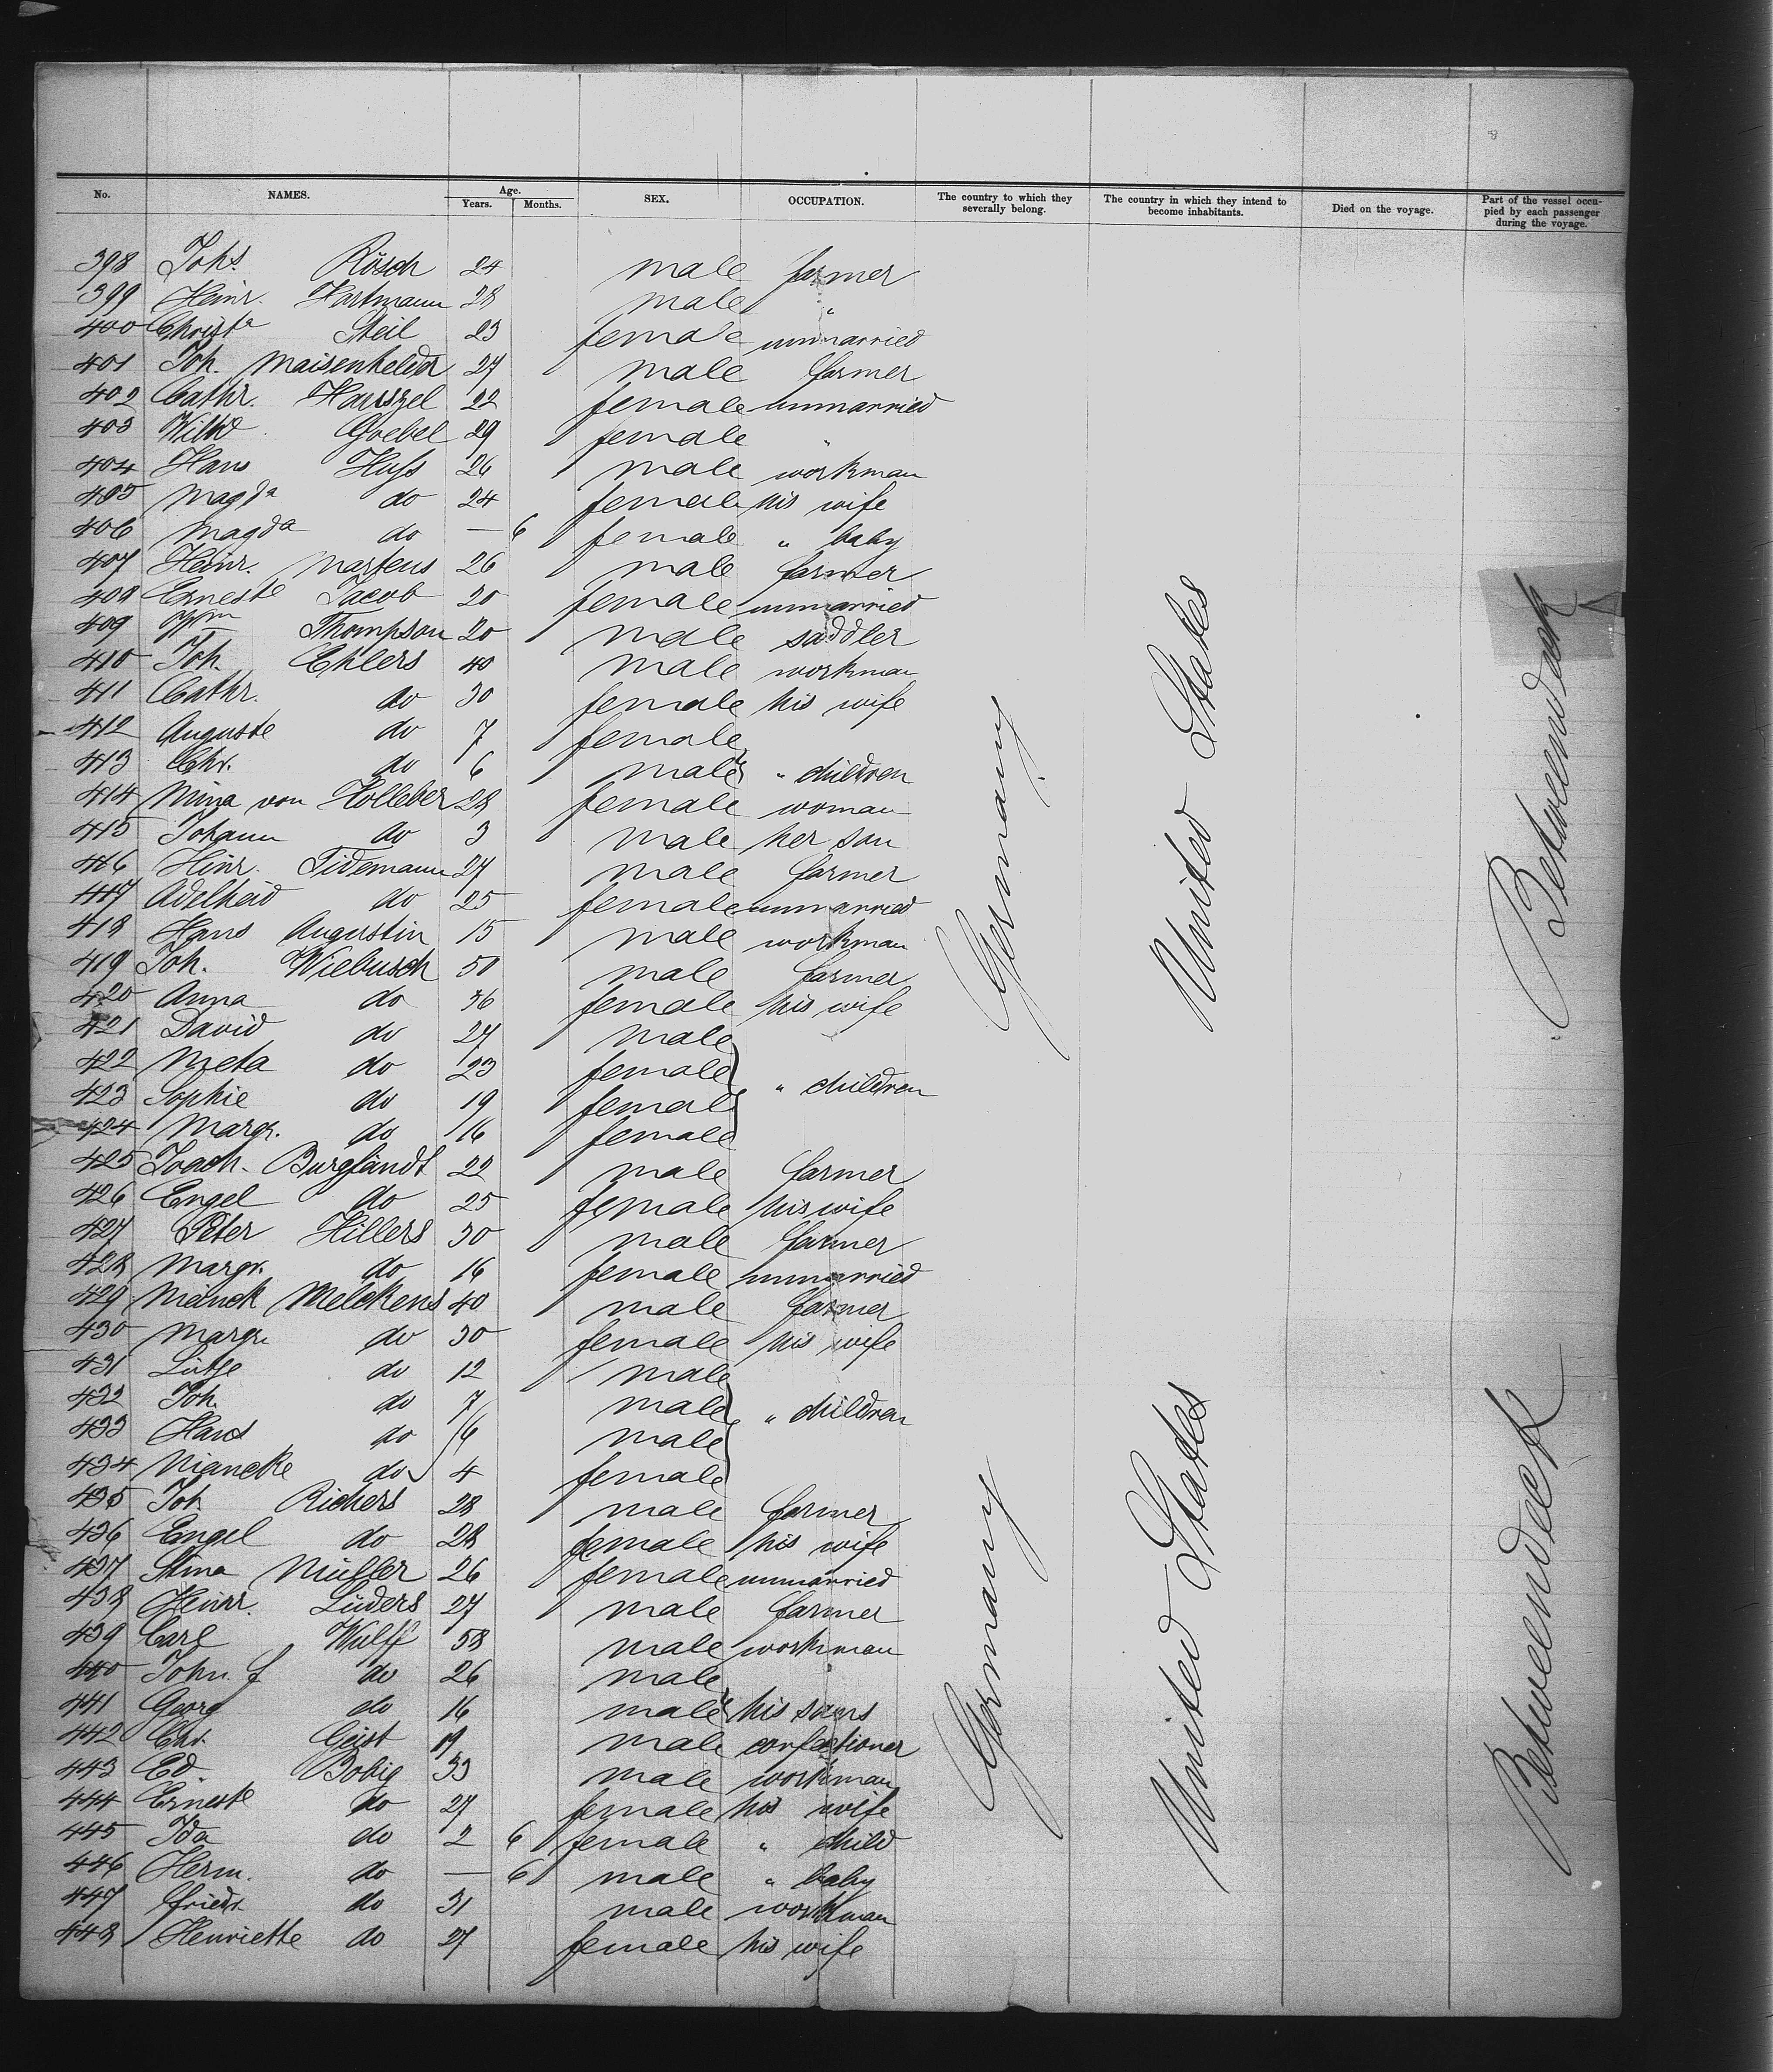 No. NAMES. Age. Years. Months. SEX. OCCUPATION. The country to which they severally belong. The country in which they intend to become inhabitants. Died on the voyage. Part of the vessel occupied by each passenger during the voyage.
398 Johs. Rösch 24 male farmer
399 Heinr. Hartmann 28 male "
400 Christe Steil 23 female unmarried
401 Joh. Maisenhelder 27 male farmer
402 Cathr. Hanszel 22 female unmarried
403 Wilhe Goebel 29 female "
404 Hans Huss 26 male workman
405 Magda do 24 female his wife
406 Magda do — 6 female " baby
407 Heinr. Martens 26 male farmer
408 Ernestе Jacob 20 female unmarried
409 Wm Thompson 20 male saddler
410 Joh Ehlers 40 male workman
411 Cathr. do 30 female his wife
412 Auguste do 7 female
413 Chr. do 6 male " children
414 Mina von Holleber 28 female woman
415 Johann do 3 male her son
416 Hinr. Tidemann 27 male farmer
417 Adelheid do 25 female unmarried
418 Hans Augustin 15 male workman
419 Joh. Wiebusch 50 male farmer
420 Anna do 36 female his wife
421 David do 27 male
422 Meta do 23 female " children
423 Sophie do 19 female
424 Margr. do 16 female
425 Joach. 22 male farmer
426 Engel do 25 female his wife
427 Peter Hillers 30 male farmer
428 Margr. do 16 female unmarried
429 Melckens 40 male farmer
430 Margr. do 30 female his wife
431 Lütje do 12 male
432 Joh. do 7 male " children
433 Hans do 6 male
434 do 4 female
435 Joh Richers 28 male farmer
436 Engel do 28 female his wife
437 Stina Müller 26 female unmarried
438 Heinr. Lüders 27 male farmer
439 Carl Wulff 58 male workman
440 John. f do 26 male
441 Georg do 16 male his sons
442 Chr. Geist 19 male confectioner
443 Ed. Bobig 33 male workman
444 Erneste do 27 female his wife
445 Ida do 2 6 female " child
446 Herm. do — 6 male " baby
447 Friedr. do 31 male workman
448 Henriette do 27 female his wife
Germany
United States
Betweendeck
Germany
United States
Betweendeck